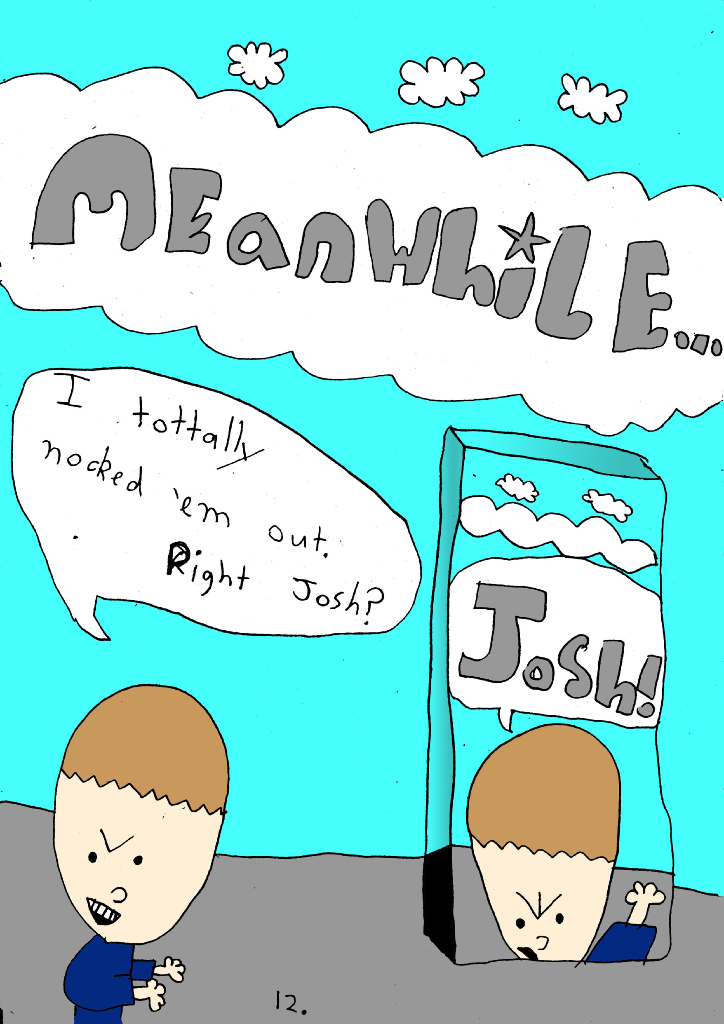 MEANWHILE...
I tottally
nocked 'em out.
Right Josh?
JOSH!
12.